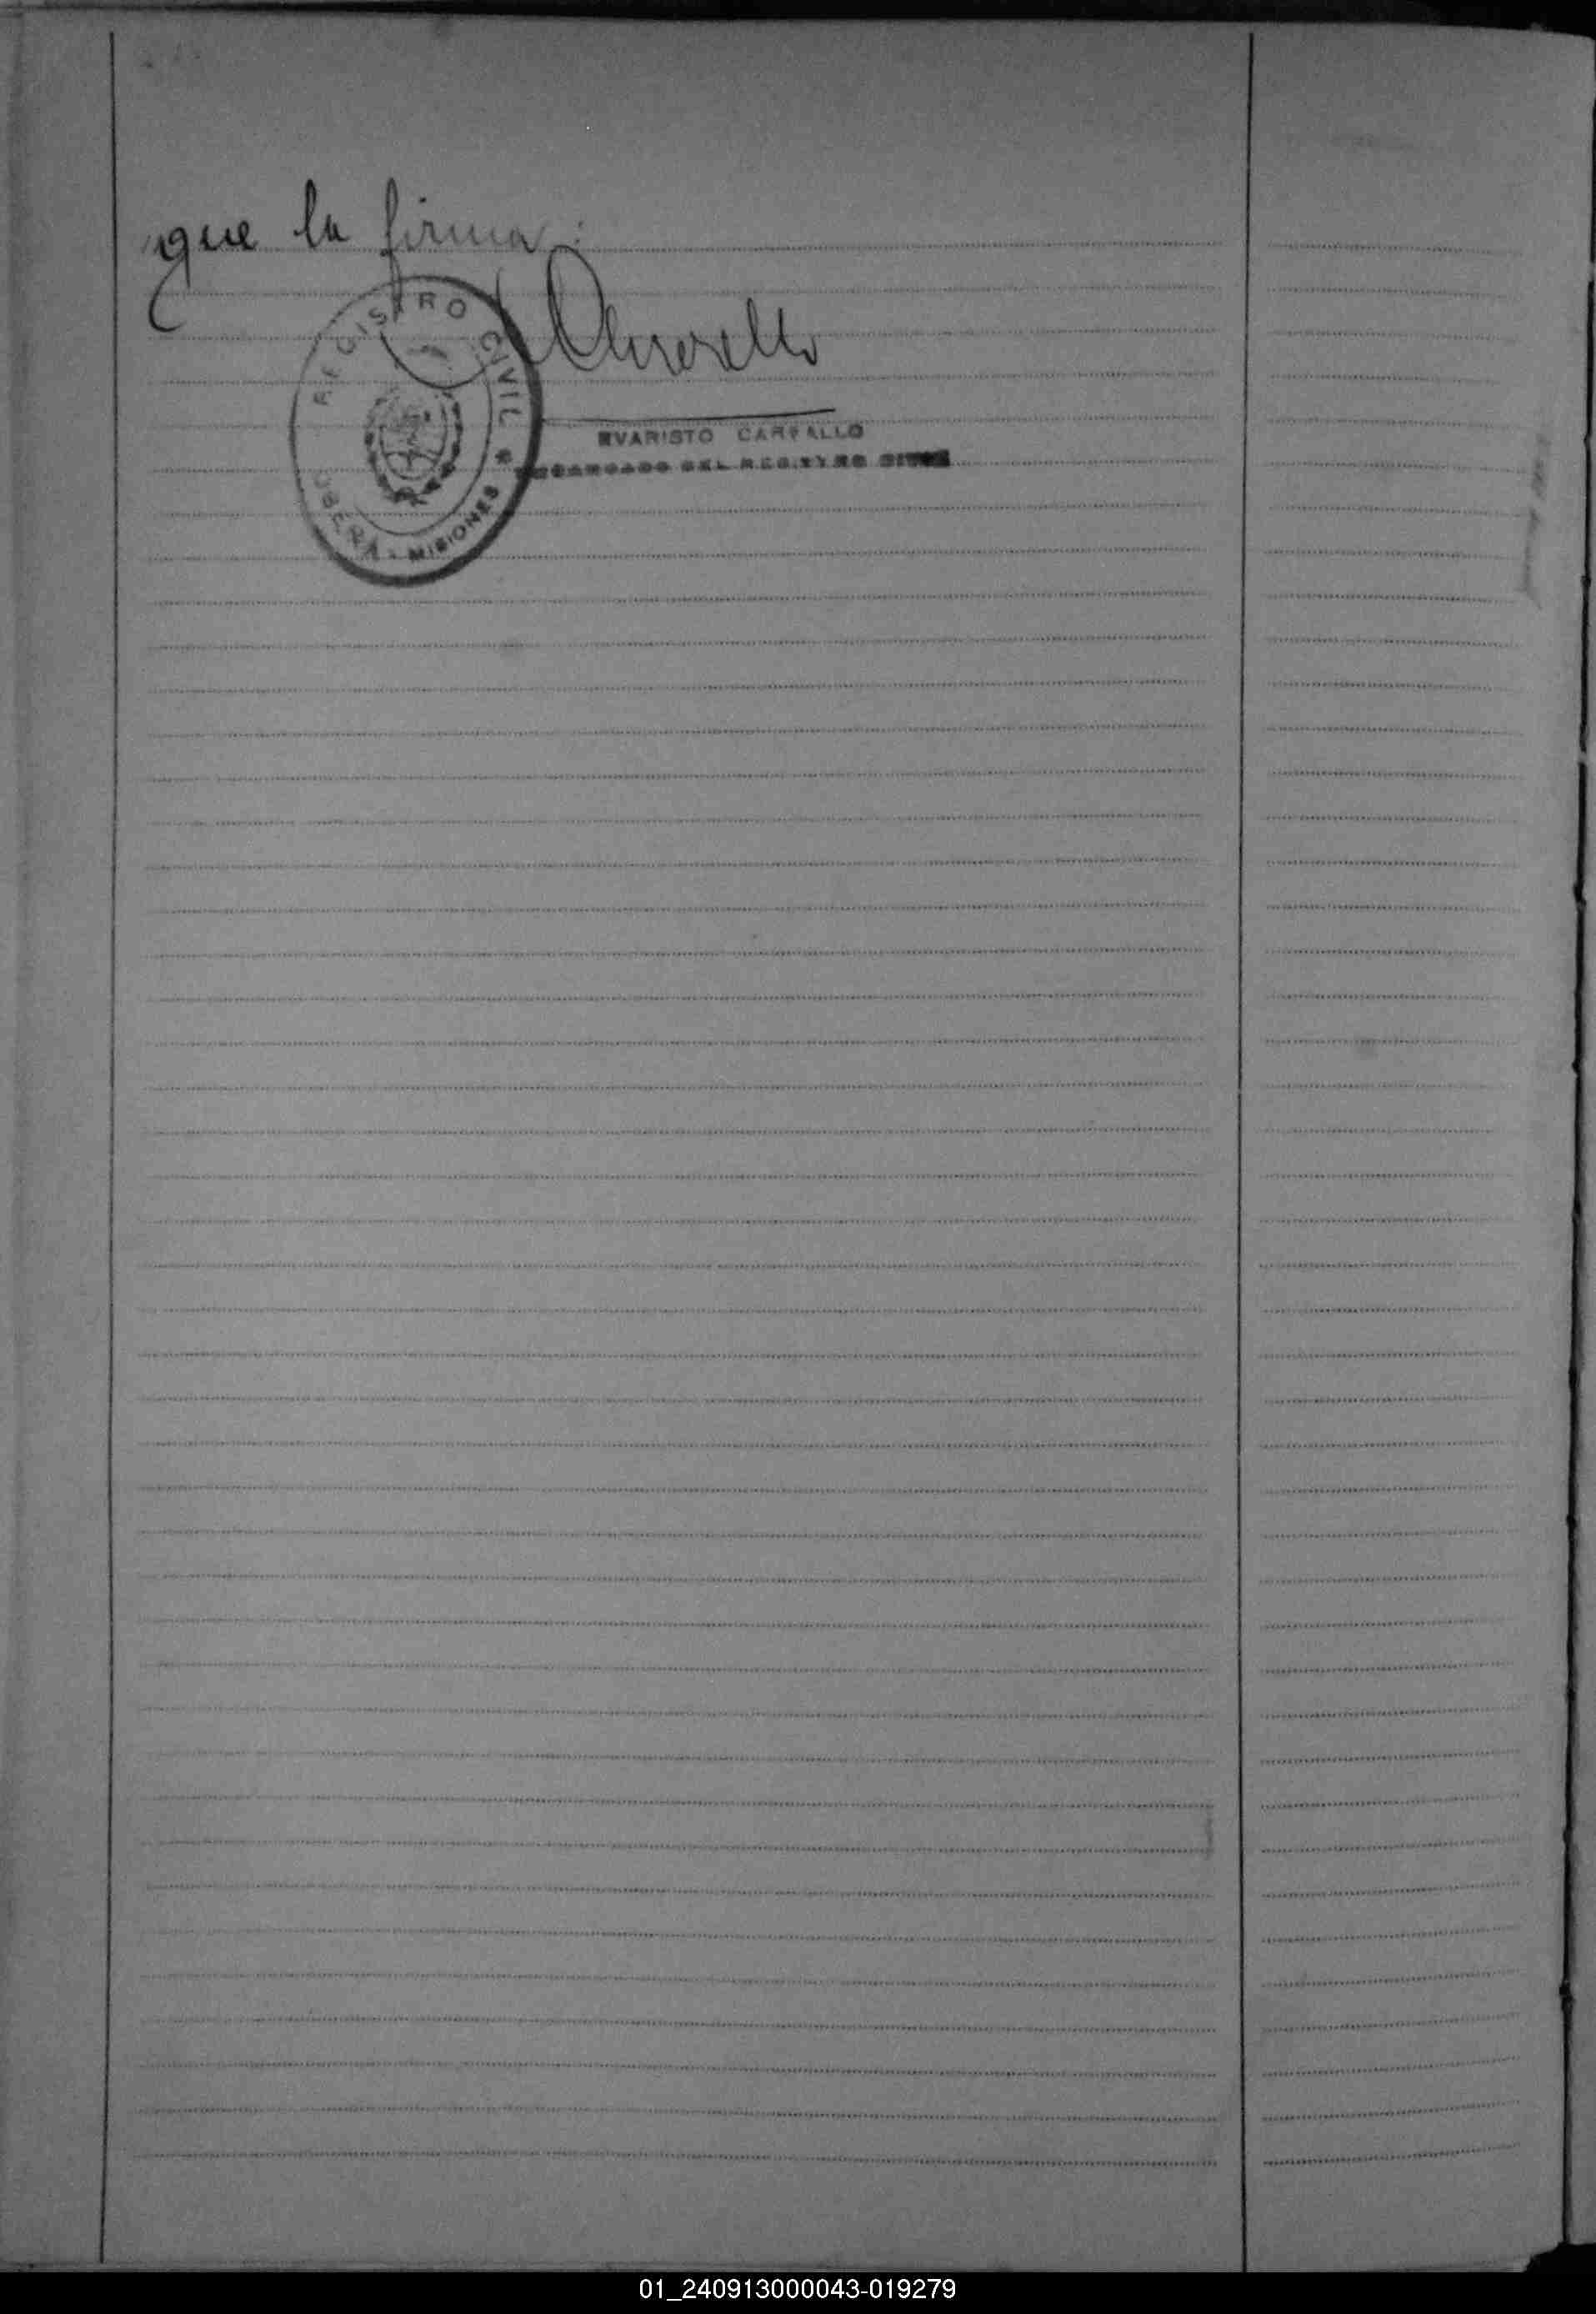 que la firma:
REGISTRO CIVIL
OBERA - MISIONES
EVARISTO CARFALLO
ENCARGADO DEL REGISTRO CIVIL
01_240913000043-019279